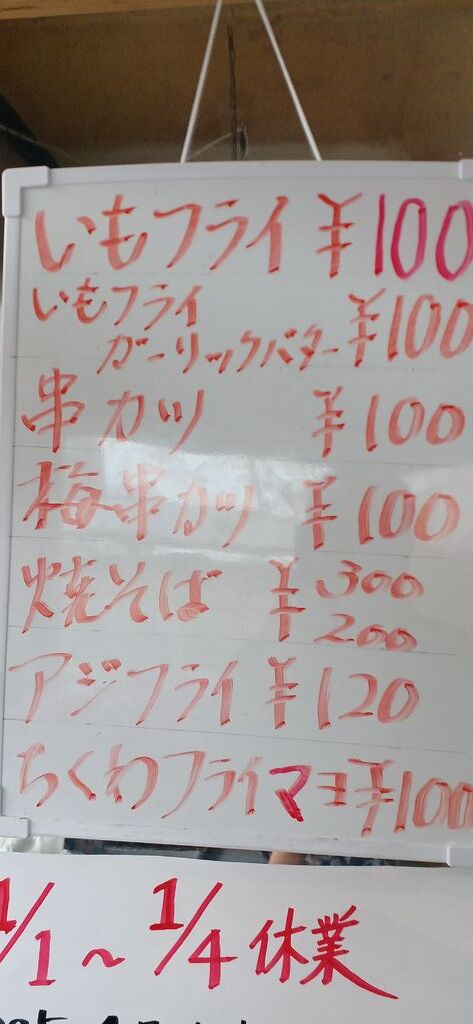 いもフライ ¥100
いもフライ
ガーリックバター ¥100
串カツ ¥100
梅串カツ ¥100
焼そば ¥300
200
アジフライ ¥120
ちくわフライマヨ ¥100
1/1～1/4 休業